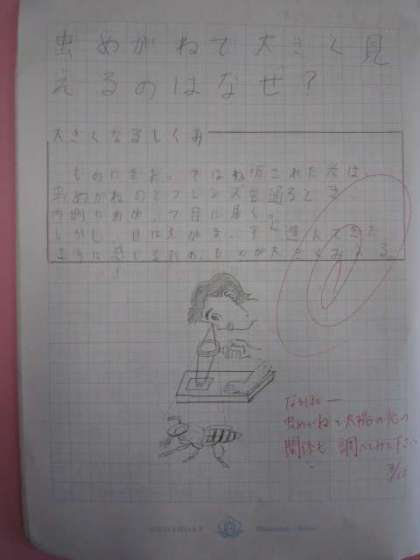 虫めがねで大きく見
えるのはなぜ?
大きくなるしくみ
ものにあたってはね返された光は、
虫めがねのとつレンズを通るとき
目に届く。
しかし、目は光がまっすぐ進んできた
ように感じるため、ものが大きく見える
なるほどー
虫めがねと太陽の光の
関係も調べてみて下さい